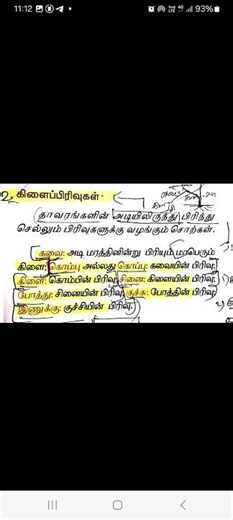 11:12
93%
2. கிளைப்பிரிவுகள்
தாவரங்களின் அடியிலிருந்து பிரிந்து
செல்லும் பிரிவுகளுக்கு வழங்கும் சொற்கள்.
கவை: அடி மரத்தினின்று பிரியும் மாபெரும்
கிளை; கொம்பு அல்லது கொப்பு: கவையின் பிரிவு;
கிளை: கொம்பின் பிரிவு; சினை: கிளையின் பிரிவு;
போத்து: சினையின் பிரிவு; குச்சு: போத்தின் பிரிவு;
இணுக்கு: குச்சியின் பிரிவு.